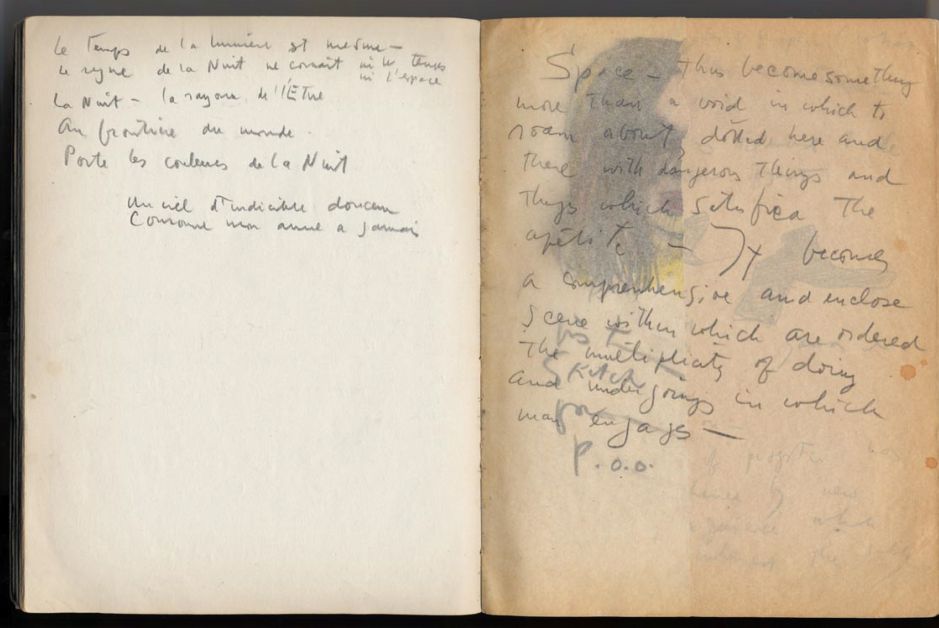 le Temps de la lumière est mesuré —
le règne de la Nuit ne connaît ni le temps
ni l'espace
La Nuit — la rayonne de l'Être
Au frontière du monde.
Porte les couleurs de la Nuit
Un ciel d'indicible douceur
Couronne mon âme a jamais
Space — Thus become something
more than a void in which to
roam about, dotted here and
there with dangerous things and
things which satisfies the
apetite — It becomes
a comprehensive and enclose
scene within which are ordered
the multiplicity of doing
and undergoings in which
man engages —
P.
Sketch
by new